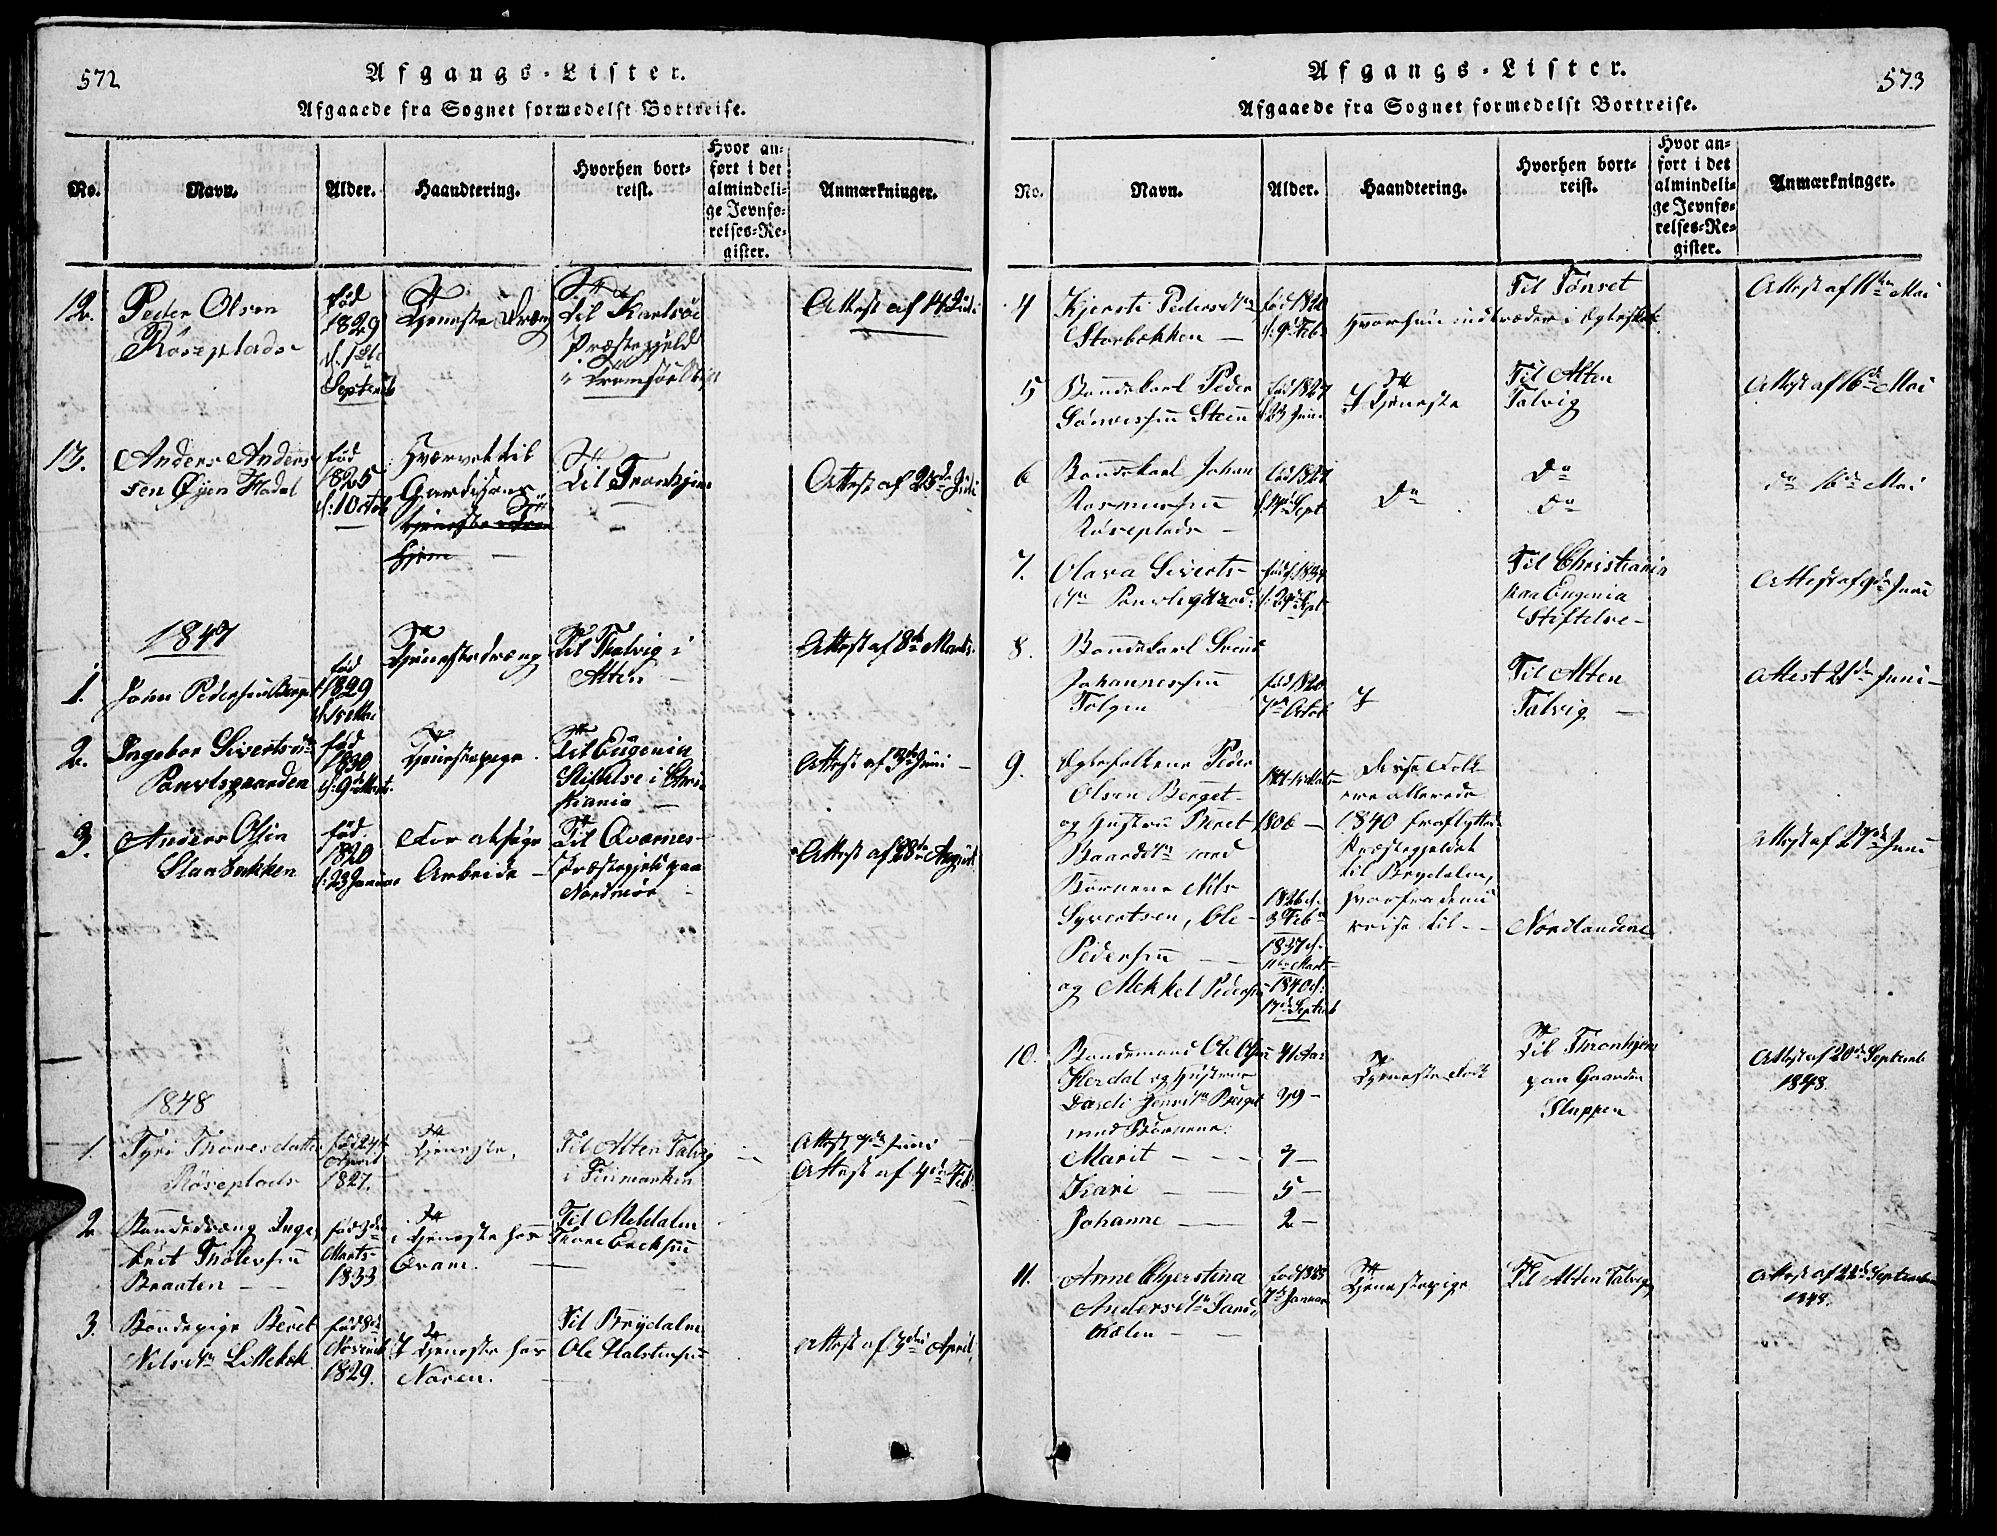 572
Afgangs-Lister.
Afgaaede fra Sognet formedelst Bortreise.
No.
Navn.
Alder.
Haandtering.
Hvorhen bort-
reist.
Hvor an-
ført i det
almindeli-
ge Jevnfø-
relses-Re-
gister.
Anmærkninger.
12.
Peder Olsen
Røseplads
fød
1829
Septemb
Tjeneste Dreng
Til Karlsøe
Præstegjeld
i Tromsøe
Attest af 14de Juli
13.
Anders Anders-
sen Øyen
fød
1825
d: 10 Octob
Hvervet til
Til Tronhjem
Attest af 23de Juli
1847
1.
John Pedersen
fød
1829
Tjenestedreng
Til Thalvig i
Alten
Attest af 8de Marts.
2.
Ingebor Sivertsdtr
Povelsgaarden
fød
1830
Tjenestepige
Til Eugenia
Stiftelse i Chri-
stiania
Attest af Juni
3.
Anders Olsen
fød
1820
d: 23 Januar
For at søge
Arbeide
Til Qvernes-
Præstegjeld paa
Nordmør
Attest af 28de August
1848
1
Tyri Thoresdatter
Røseplads
April
1827.
Tjeneste,
Til Alten Talvig
i Finmarken
Attest Juni
Attest af 4de Feb:
2
Bondedreng Inge-
brit
Braaten
Marts
1833
i Tjeneste hos
Til Meldalen
Thore Erichsen
3.
Bondepige Beret
Nilsdtr Littebek
fød 8de
Novemb
1829.
I Tjeneste hos
Til Brydalen
Ole Halstensen
Attest af 3die April
573
Afgangs-Lister.
Afgaaede fra Sognet formedelst Bortreise.
No.
Navn.
Alder.
Haandtering.
Hvorhen bort-
reist.
Hvor an-
ført i det
almindeli-
ge Jevnfø-
relses-Re-
gister.
Anmærkninger.
4
Kjersti Pedersdtr
Storbekken
fød 1820
d: 9de Feb
Hvor hun indtræder i Egteskab
Til Tønset
Attest af 11te Mai
5
Bondekarl Peder
fød 1827
I Tjeneste
Til Alten
Talvig
Attest af 16de Mai
6
Bondekarl Johan
Rasmussen
Røseplads
fød 1827
Do
Do
Do
Do 16de Mai
7.
Olava Siverts-
dtr
Til Christiania
paa Eugenia
Stiftelse
Attest af 9de Juni
8.
Bondekarl
Johannessen
Tolgen
fød 1820
7de Octob
Til Alten
Talvig
Attest 21de Juni
9.
Egtefolkene Peder
Olsen Berget
og Hustru Beret
Baardsdtr med
Børnene Nils
Syvertsen, Ole
Pedersen
og Mekkel Pedersen
1806
1826 d.
3de Feb
1837 d.
11te Marts
1840 d:
17de Septemb
Disse Folk
ere allerede
1840 fraflyttede
Præstegjeldet
til Brydalen,
hvorfra de nu
reise til
Nordlandene
Attest af 27de Juni
10.
Bondemand Ole Olsen
Herdal og Hustrue
Dardi Jonsdtr Berget
med Børnene:
Marit
Kari
Johanne
41 Aar
39
7
5
2
Tjeneste Folk
Til Thronhjem
paa Gaarden
Sluppen
Attest af 20de Septemb
1848.
11.
Anne Chjerstina
Andersdtr
fød 1825
7de Januar
Tjenestepige
Til Alten Talvig
Attest af 22de September
1848.